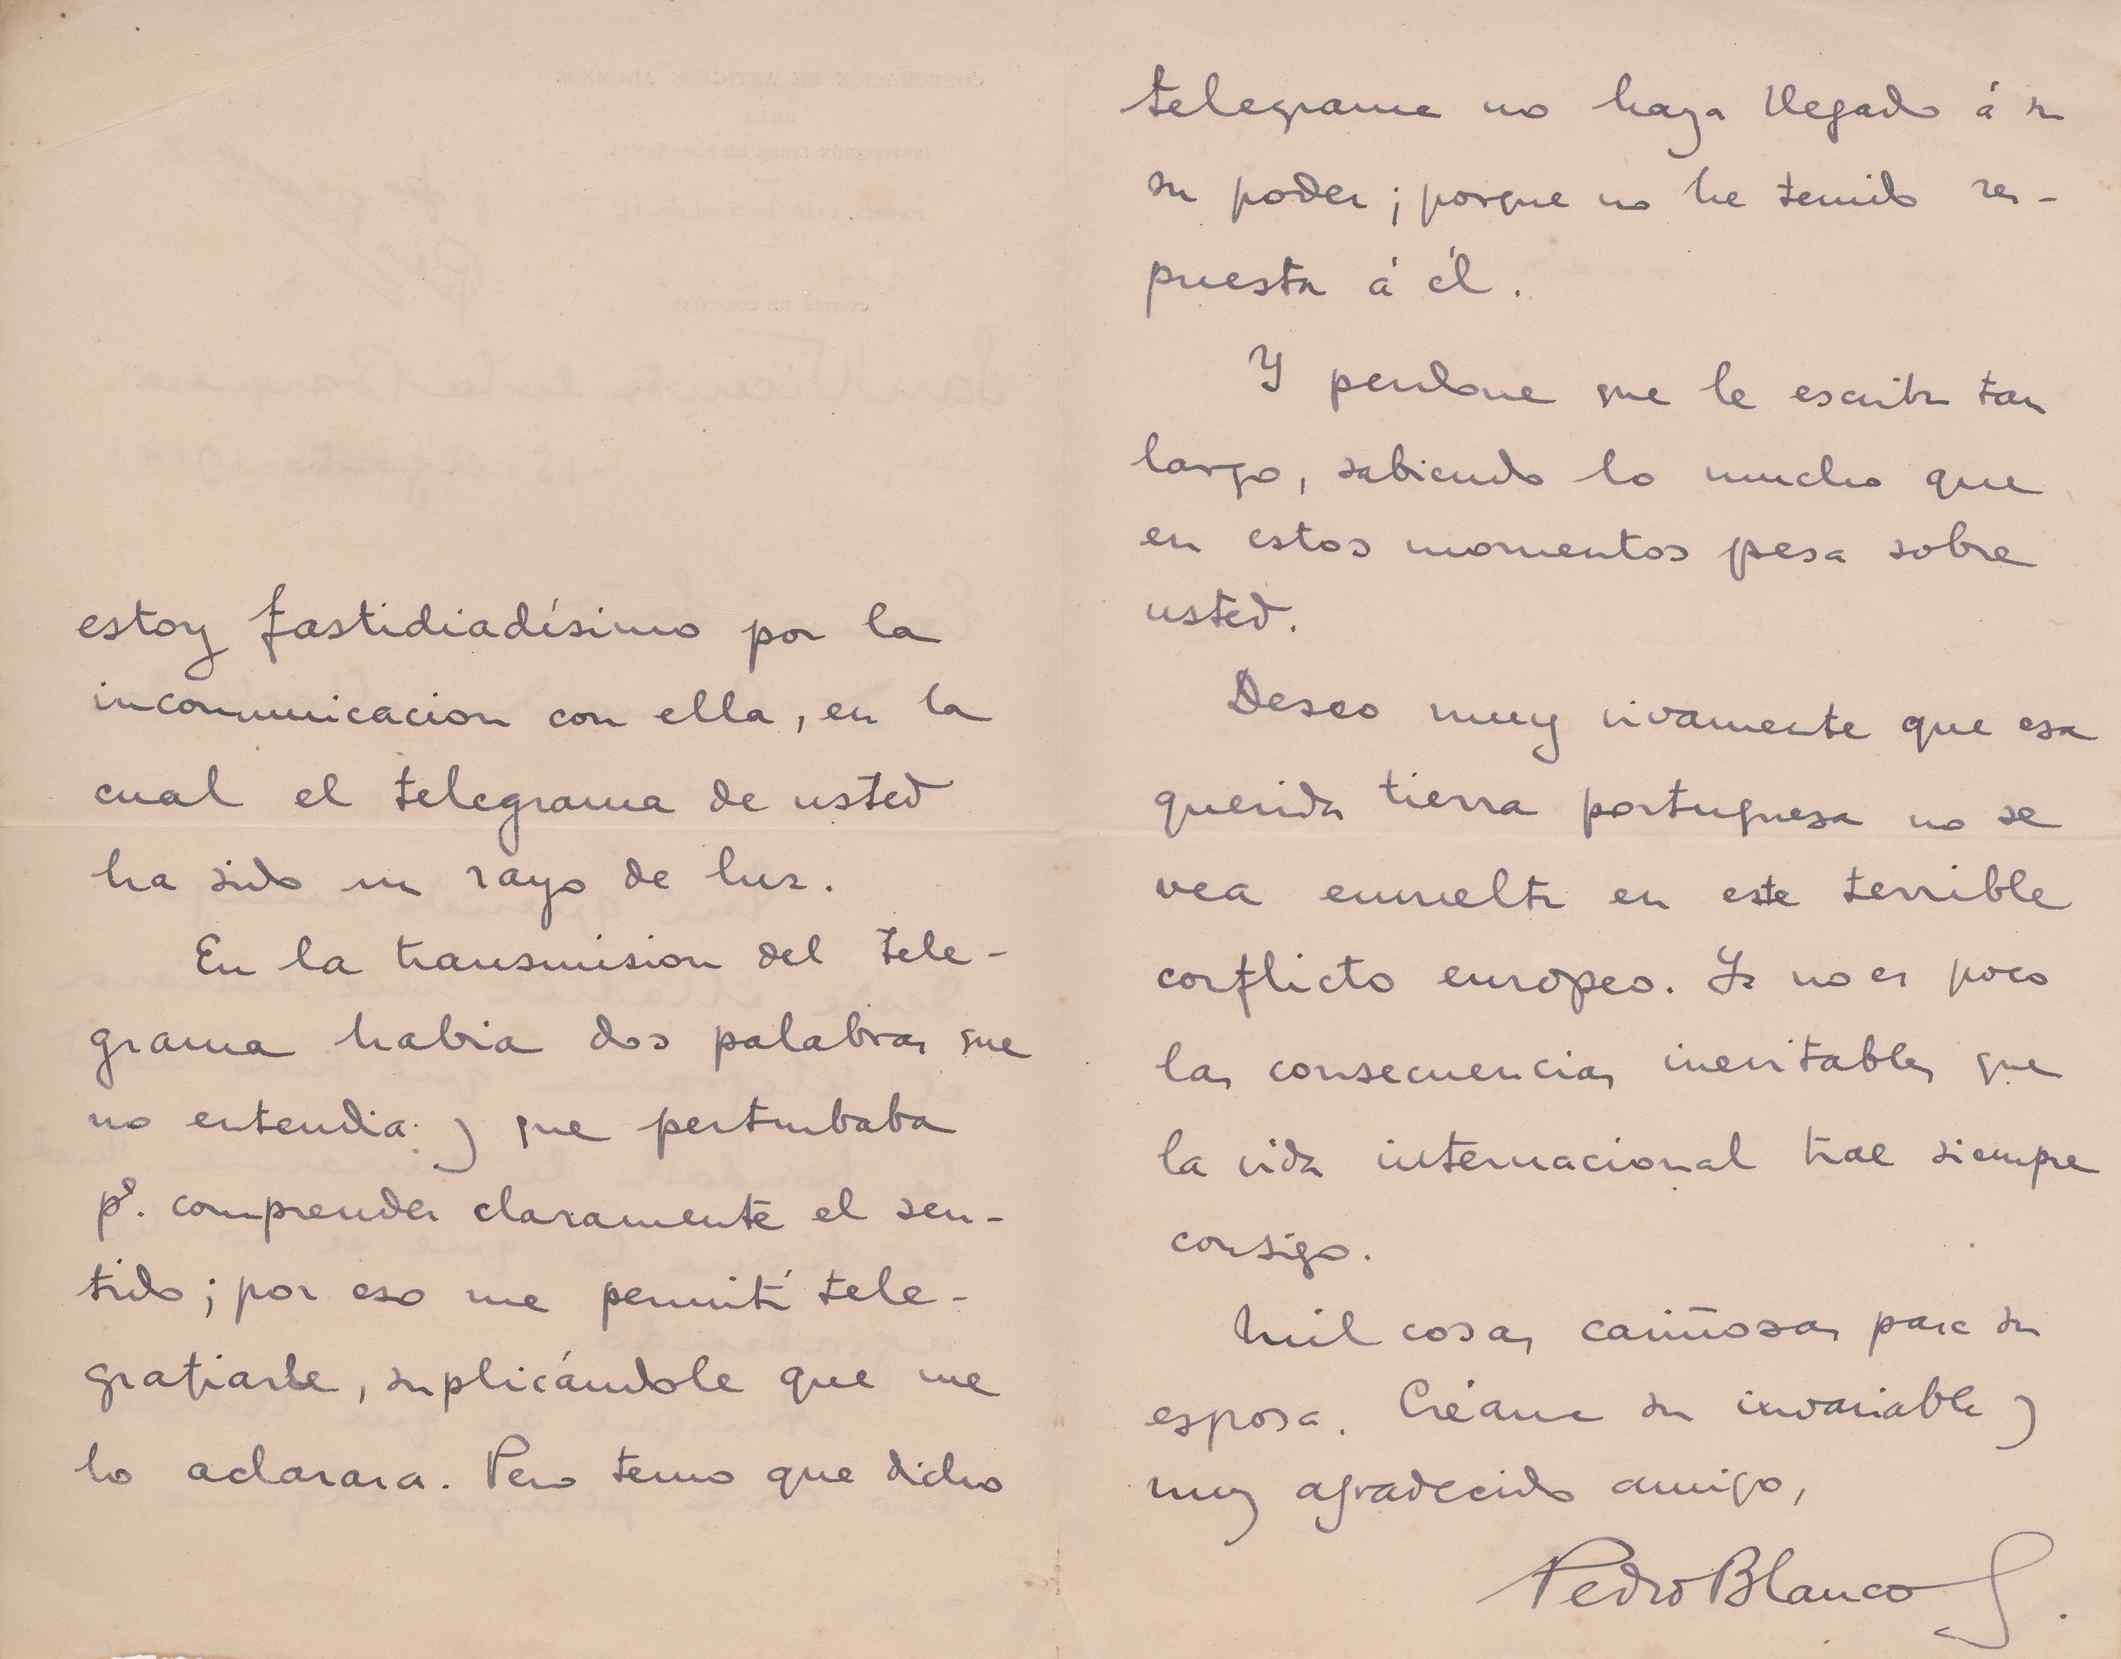 estoy fastidiadísimo por la
incomunicacion con ella, en la
cual el telegrama de usted
ha sido un rayo de luz.
En la transmision del tele-
grama habia dos palabras que
no entendia y que perturbaba
pª. comprender claramente el sen-
tido; por eso me permití tele-
grafiarle, suplicándole que me
lo aclarara. Pero temo que dicho
telegrama no haya llegado á su
su poder; porque no he tenido res-
puesta á él.
Y perdone que le escriba tan
largo, sabiendo lo mucho que
en estos momentos pesa sobre
usted.
Deseo muy vivamente que esa
querida tierra portuguesa no se
vea envuelta en este terrible
conflicto europeo. Ya no es poco
las consecuencias inevitables que
la vida internacional trae siempre
consigo.
Mil cosas cariñosas para su
esposa. Créame su invariable y
muy agradecido amigo,
Pedro Blanco S.